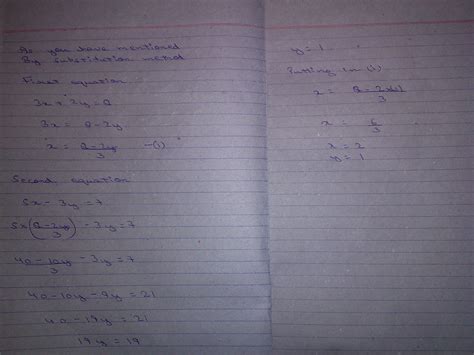 As you have mentioned
By substitution method
First equation
3x + 2y = 8
3x = 8 - 2y
x = 8 - 2y / 3 -(1)
Second equation
5x - 3y = 7
5x(8 - 2y / 3) - 3y = 7
40 - 10y / 3 - 3y = 7
40 - 10y - 9y = 21
40 - 19y = 21
19y = 19
y = 1
Putting in (1)
x = 8 - 2x(1) / 3
x = 6 / 3
x = 2
y = 1